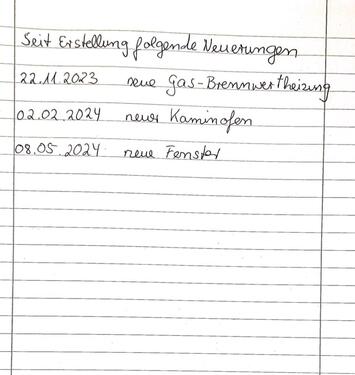 Seit Erstellung folgende Neuerungen
22.11.2023 neue Gas-Brennwertheizung
02.02.2024 neuer Kaminofen
08.05.2024 neue Fenster